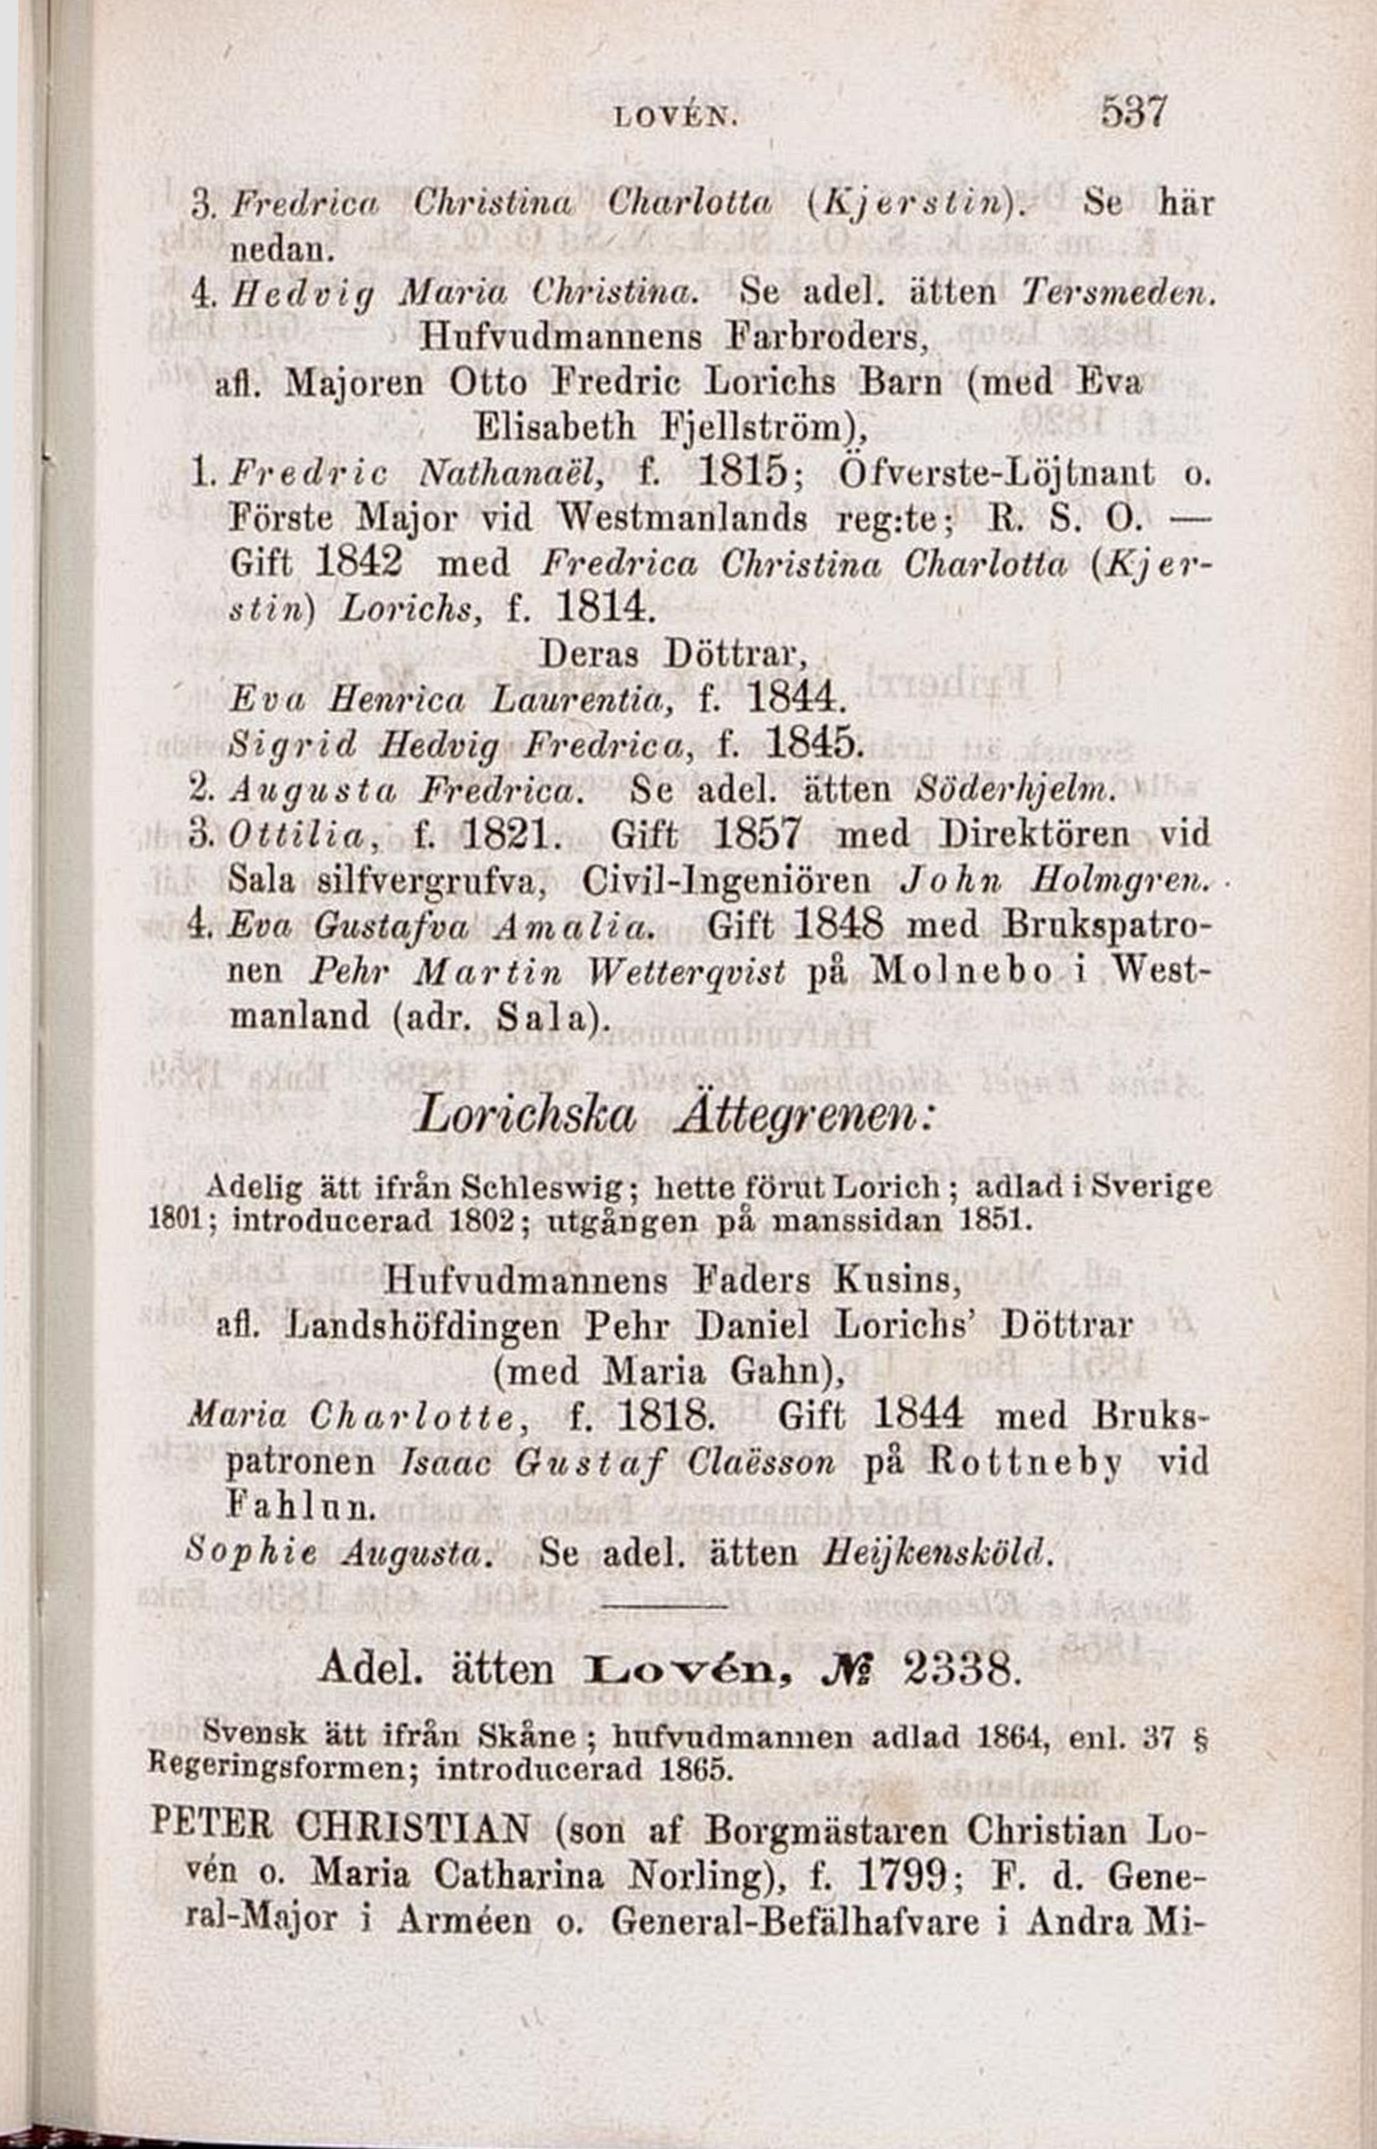 LOVÉN. 537
3. Fredrica Christina Charlotta (Kjerstin). Se här
nedan.
4. Hedvig Maria Christina. Se adel. ätten Tersmeden.
Hufvudmannens Farbroders,
afl. Majoren Otto Fredric Lorichs Barn (med Eva
Elisabeth Fjellström),
1. Fredric Nathanaël, f. 1815; Öfverste-Löjtnant o.
Förste Major vid Westmanlands reg:te; R. S. O. —
Gift 1842 med Fredrica Christina Charlotta (Kjer-
stin) Lorichs, f. 1814.
Deras Döttrar,
Eva Henrica Laurentia, f. 1844.
Sigrid Hedvig Fredrica, f. 1845.
2. Augusta Fredrica. Se adel. ätten Söderhjelm.
3. Ottilia, f. 1821. Gift 1857 med Direktören vid
Sala silfvergrufva, Civil-Ingeniören John Holmgren.
4. Eva Gustafva Amalia. Gift 1848 med Brukspatro-
nen Pehr Martin Wetterqvist på Molnebo i West-
manland (adr. Sala).
Lorichska Ättegrenen:
Adelig ätt ifrån Schleswig; hette förut Lorich; adlad i Sverige
1801; introducerad 1802; utgången på manssidan 1851.
Hufvudmannens Faders Kusins,
afl. Landshöfdingen Pehr Daniel Lorichs' Döttrar
(med Maria Gahn),
Maria Charlotte, f. 1818. Gift 1844 med Bruks-
patronen Isaac Gustaf Claësson på Rottneby vid
Fahlun.
Sophie Augusta. Se adel. ätten Heijkensköld.
Adel. ätten Lovén, № 2338.
Svensk ätt ifrån Skåne; hufvudmannen adlad 1864, enl. 37 §
Regeringsformen; introducerad 1865.
PETER CHRISTIAN (son af Borgmästaren Christian Lo-
vén o. Maria Catharina Norling), f. 1799; F. d. Gene-
ral-Major i Arméen o. General-Befälhafvare i Andra Mi-